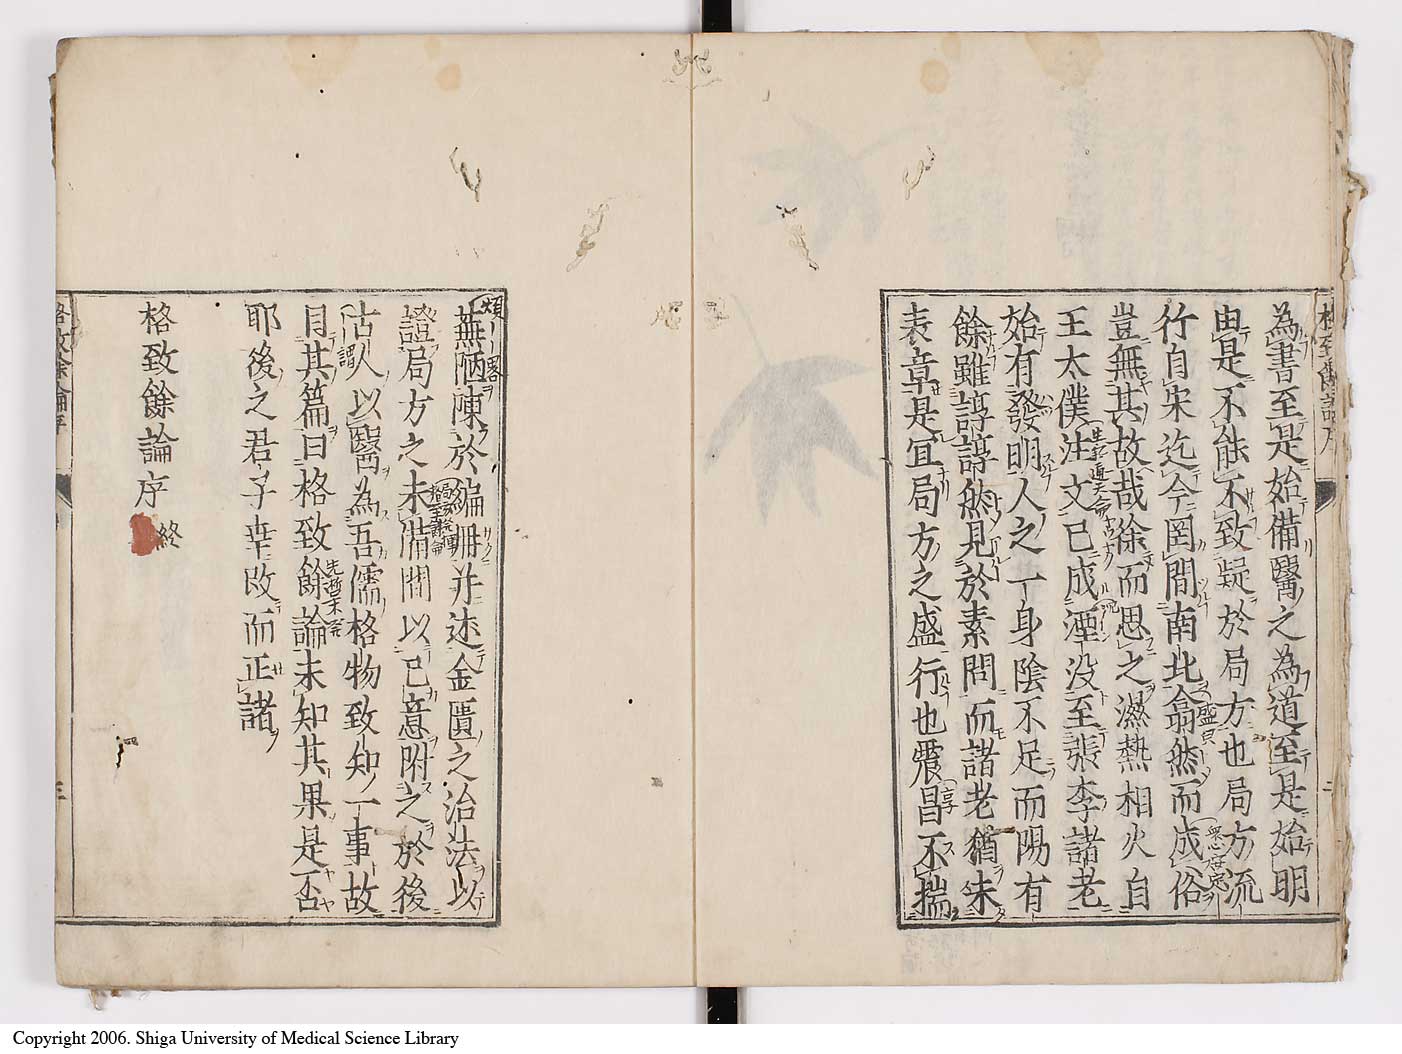 為書至是始備醫之為道至是始明
由是不能不致疑於局方也局方流
行自宋迄今罔間南北翕然而成俗
豈無其故哉徐而思之濕熱相火自
王太僕注文已成湮没至張李諸老
始有發明人之一身陰不足而陽有
餘雖諄諄然見於素問而諸老猶未
表章是宜局方之盛行也震昌不揣
蕪陋陳於編冊并述金匱之治法以
證局方之未備間以已意附之於後
古人以醫為吾儒格物致知一事故
目其篇曰格致餘論未知其果是否
耶後之君子幸改而正諸
格致餘論序 終
Copyright 2006. Shiga University of Medical Science Library